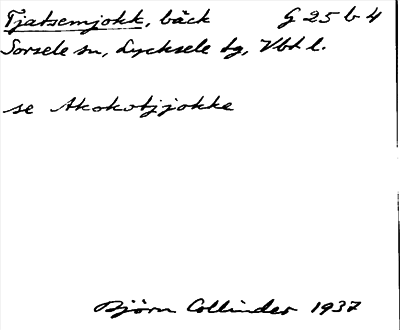 Tjatsemjokk, bäck G 25 b 4
Sorsele sn, Lycksele tg, Vbt l.
se Akokotjjokke
Björn Collinder 1937